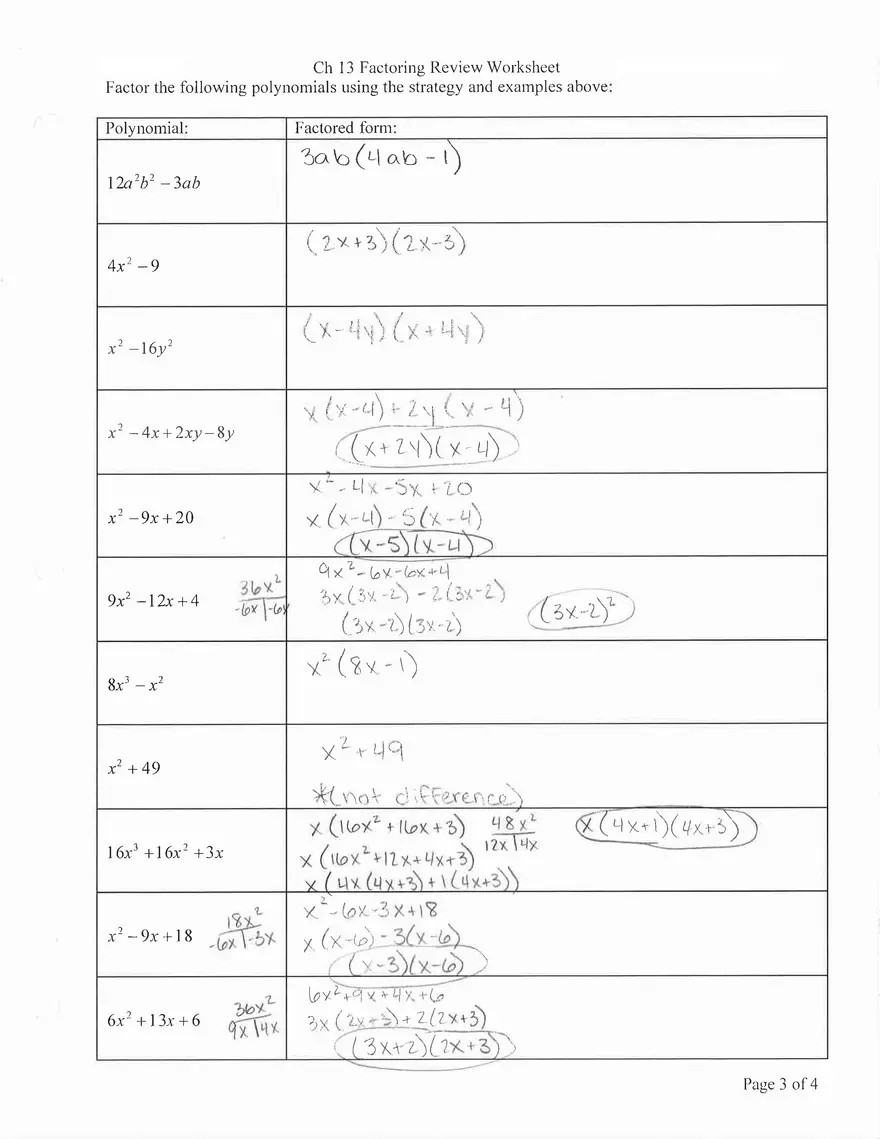 Ch 13 Factoring Review Worksheet
Factor the following polynomials using the strategy and examples above:
Polynomial: Factored form:
12a²b² – 3ab
3ab(4ab - 1)
4x² – 9
(2x+3)(2x-3)
x² – 16y²
(x-4y)(x+4y)
x² – 4x + 2xy – 8y
x(x-4)+2y(x-4)
(x+2y)(x-4)
x² – 9x + 20
x²-4x-5x+20
x(x-4)-5(x-4)
(x-5)(x-4)
9x² – 12x + 4
36x²
-6x | -6x
9x²-6x-6x+4
3x(3x-2)-2(3x-2)
(3x-2)(3x-2)
(3x-2)²
8x³ – x²
x²(8x-1)
x² + 49
x²+49
*(not difference)
16x³ + 16x² + 3x
x(16x²+16x+3)
x(16x²+12x+4x+3)
x(4x(4x+3)+1(4x+3))
48x²
12x | 4x
x(4x+1)(4x+3)
x² – 9x + 18
18x²
-6x | -3x
x²-6x-3x+18
x(x-6)-3(x-6)
(x-3)(x-6)
6x² + 13x + 6
36x²
9x | 4x
6x²+9x+4x+6
3x(2x+3)+2(2x+3)
(3x+2)(2x+3)
Page 3 of 4